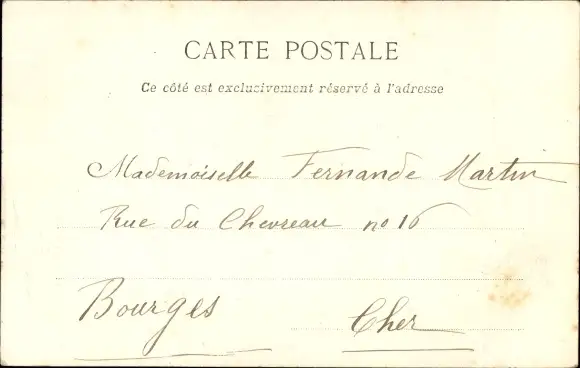 CARTE POSTALE
Ce côté est exclusivement réservé à l'adresse
Mademoiselle Fernande Martin
Rue du Chevreau no 16
Bourges Cher